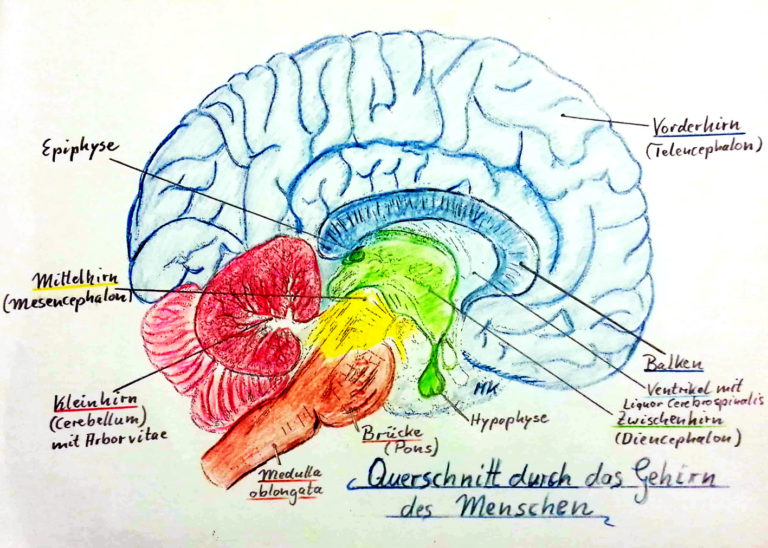 Epiphyse
Vorderhirn
(Telencephalon)
Mittelhirn
(Mesencephalon)
Kleinhirn
(Cerebellum)
mit Arbor vitae
Medulla
oblongata
Brücke
(Pons)
Hypophyse
MK
Balken
Ventrikel mit
Liquor Cerebrospinalis
Zwischenhirn
(Diencephalon)
Querschnitt durch das Gehirn
des Menschen